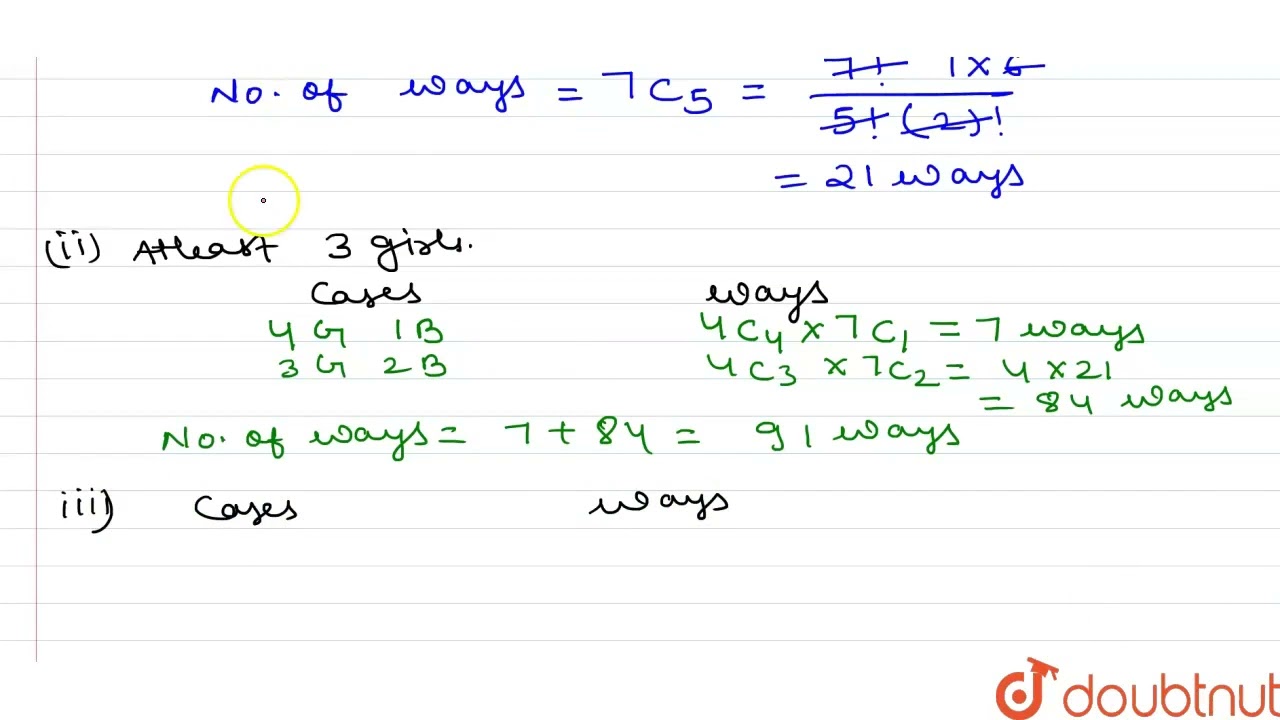 7! 1×6
No. of ways = 7C5 = 5! (2)!
= 21 ways
(ii) Atleast 3 girls.
Cases ways
4G 1B 4C4 × 7C1 = 7 ways
3G 2B 4C3 × 7C2 = 4 × 21
= 84 ways
No. of ways = 7 + 84 = 91 ways
iii) Cases ways
doubtnut